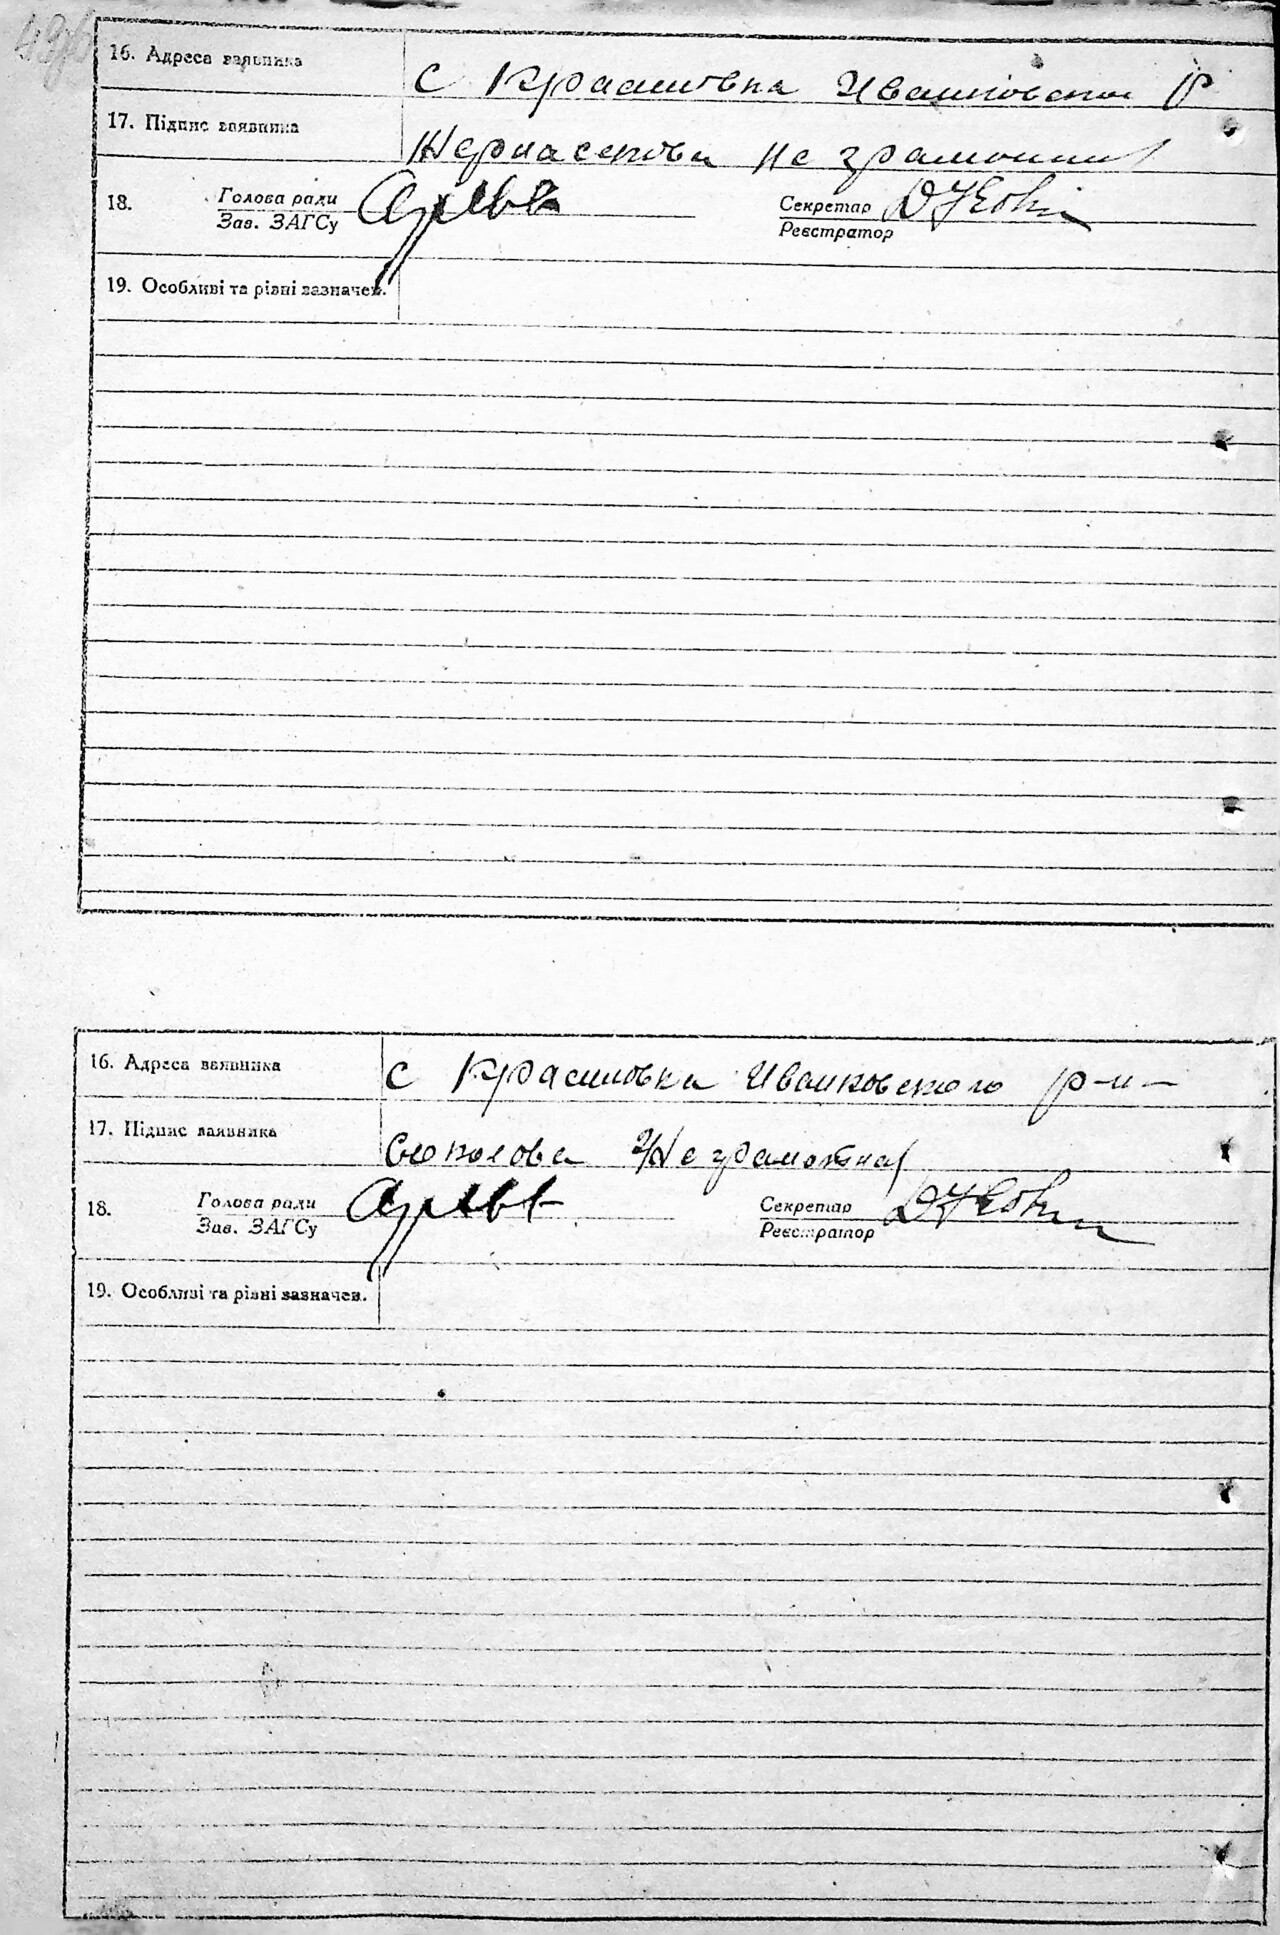 16. Адреса заявника
с Красиловка Иванковского р
17. Підпис заявника
не грамотная
18. Голова ради
Зав. ЗАГСу
Секретар
Реєстратор
19. Особливі та різні зазначен.
16. Адреса заявника
с Красиловка Иванковского р-н-
17. Підпис заявника
Соколова Не грамотная
18. Голова ради
Зав. ЗАГСу
Секретар
Реєстратор
19. Особливі та різні зазначен.